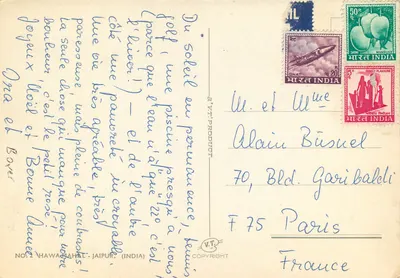 Du soleil en permanence, tennis
golf, une piscine presqu'à nous
(parce que l'eau n'a que 22°, c'est
l'hiver!) — et de l'autre
côté une pauvreté incroyable.
Une vie très agréable, très
paresseuse mais pleine de contrastes!
La seule chose qui manque pour notre
bonheur c'est le petit rosé.
Joyeux Noël et Bonne Année
et
NO. "HAWA MAHAL" - JAIPUR (INDIA)
PRODUCT
COPYRIGHT
भारत INDIA
50
भारत INDIA
भारत INDIA
M. et Mme
Alain Büsnel
70, Bld. Garibaldi
F 75 Paris
France